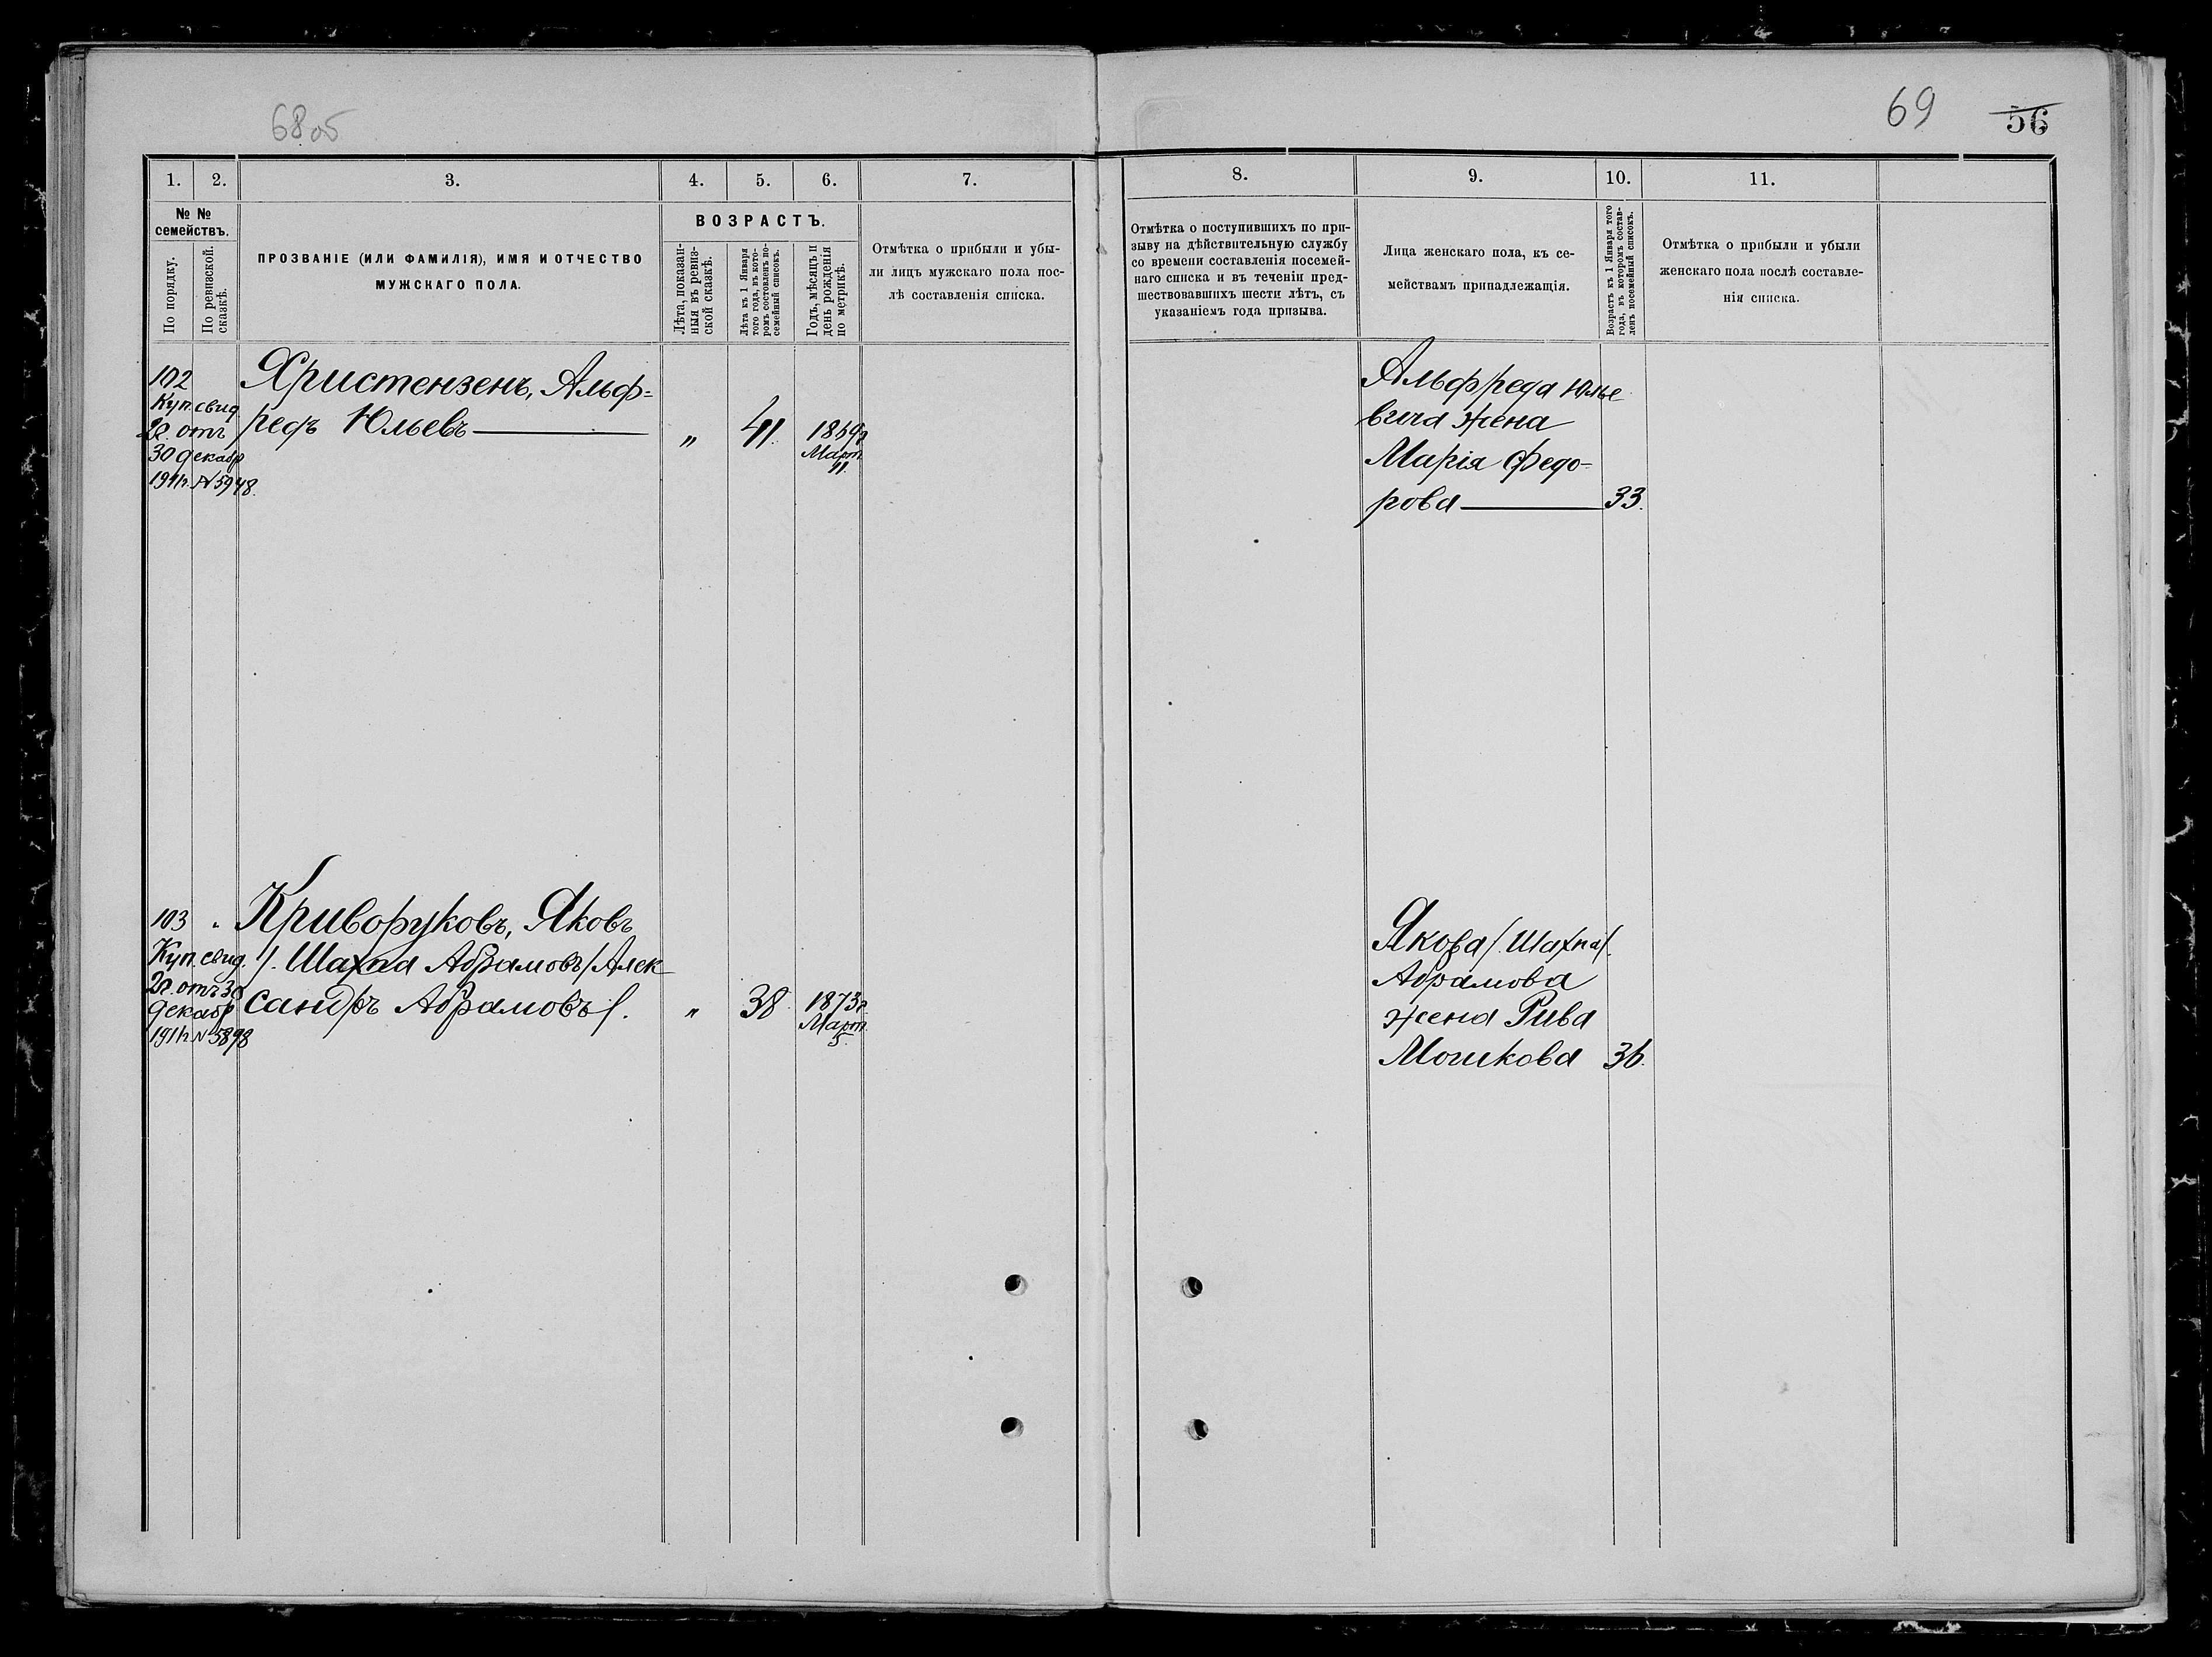 68 об
69 56
1. 2. 3. 4. 5. 6. 7.
№ № семействъ.
По порядку.
По ревизской сказкѣ.
ПРОЗВАНІЕ (ИЛИ ФАМИЛІЯ), ИМЯ И ОТЧЕСТВО
МУЖСКАГО ПОЛА.
ВОЗРАСТЪ.
Лѣта, показан-
ныя въ ревиз-
ской сказкѣ.
Лѣта къ 1 Января
того года, въ кото-
ромъ составленъ по-
семейный списокъ.
Годъ, мѣсяцъ и
день рожденія
по метрикѣ.
Отмѣтка о прибыли и убы-
ли лицъ мужскаго пола пос-
лѣ составленія списка.
8. 9. 10. 11.
Отмѣтка о поступившихъ по при-
зыву на дѣйствительную службу
со времени составленія посемей-
наго списка и въ теченіи пред-
шествовавшихъ шести лѣтъ, съ
указаніемъ года призыва.
Лица женскаго пола, къ се-
мействамъ принадлежащія.
Возрастъ къ 1 Января того
года, въ которомъ состав-
ленъ посемейный списокъ.
Отмѣтка о прибыли и убыли
женскаго пола послѣ составле-
нія списка.
102
Куп. свид.
2г. отъ
30 декабр
1911г. № 5948.
Христензенъ, Альф=
редъ Юльевъ
" 41.
Март.
11.
Альфреда Юлье
вича жена
Марія Федо-
рова 33.
103
Куп. свид.
2г. отъ 30
декабр
1911г. № 5898
Криворуковъ, Яковъ
/. Шахна Абрамовъ/Алек
сандръ Абрамовъ/.
" 38. 1873г.
Март.
5.
Якова/. Шахна/.
Абрамова
жена Рива
Мошкова 36.